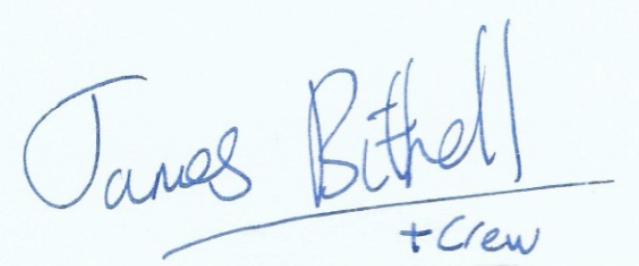 James Bithell
+ crew